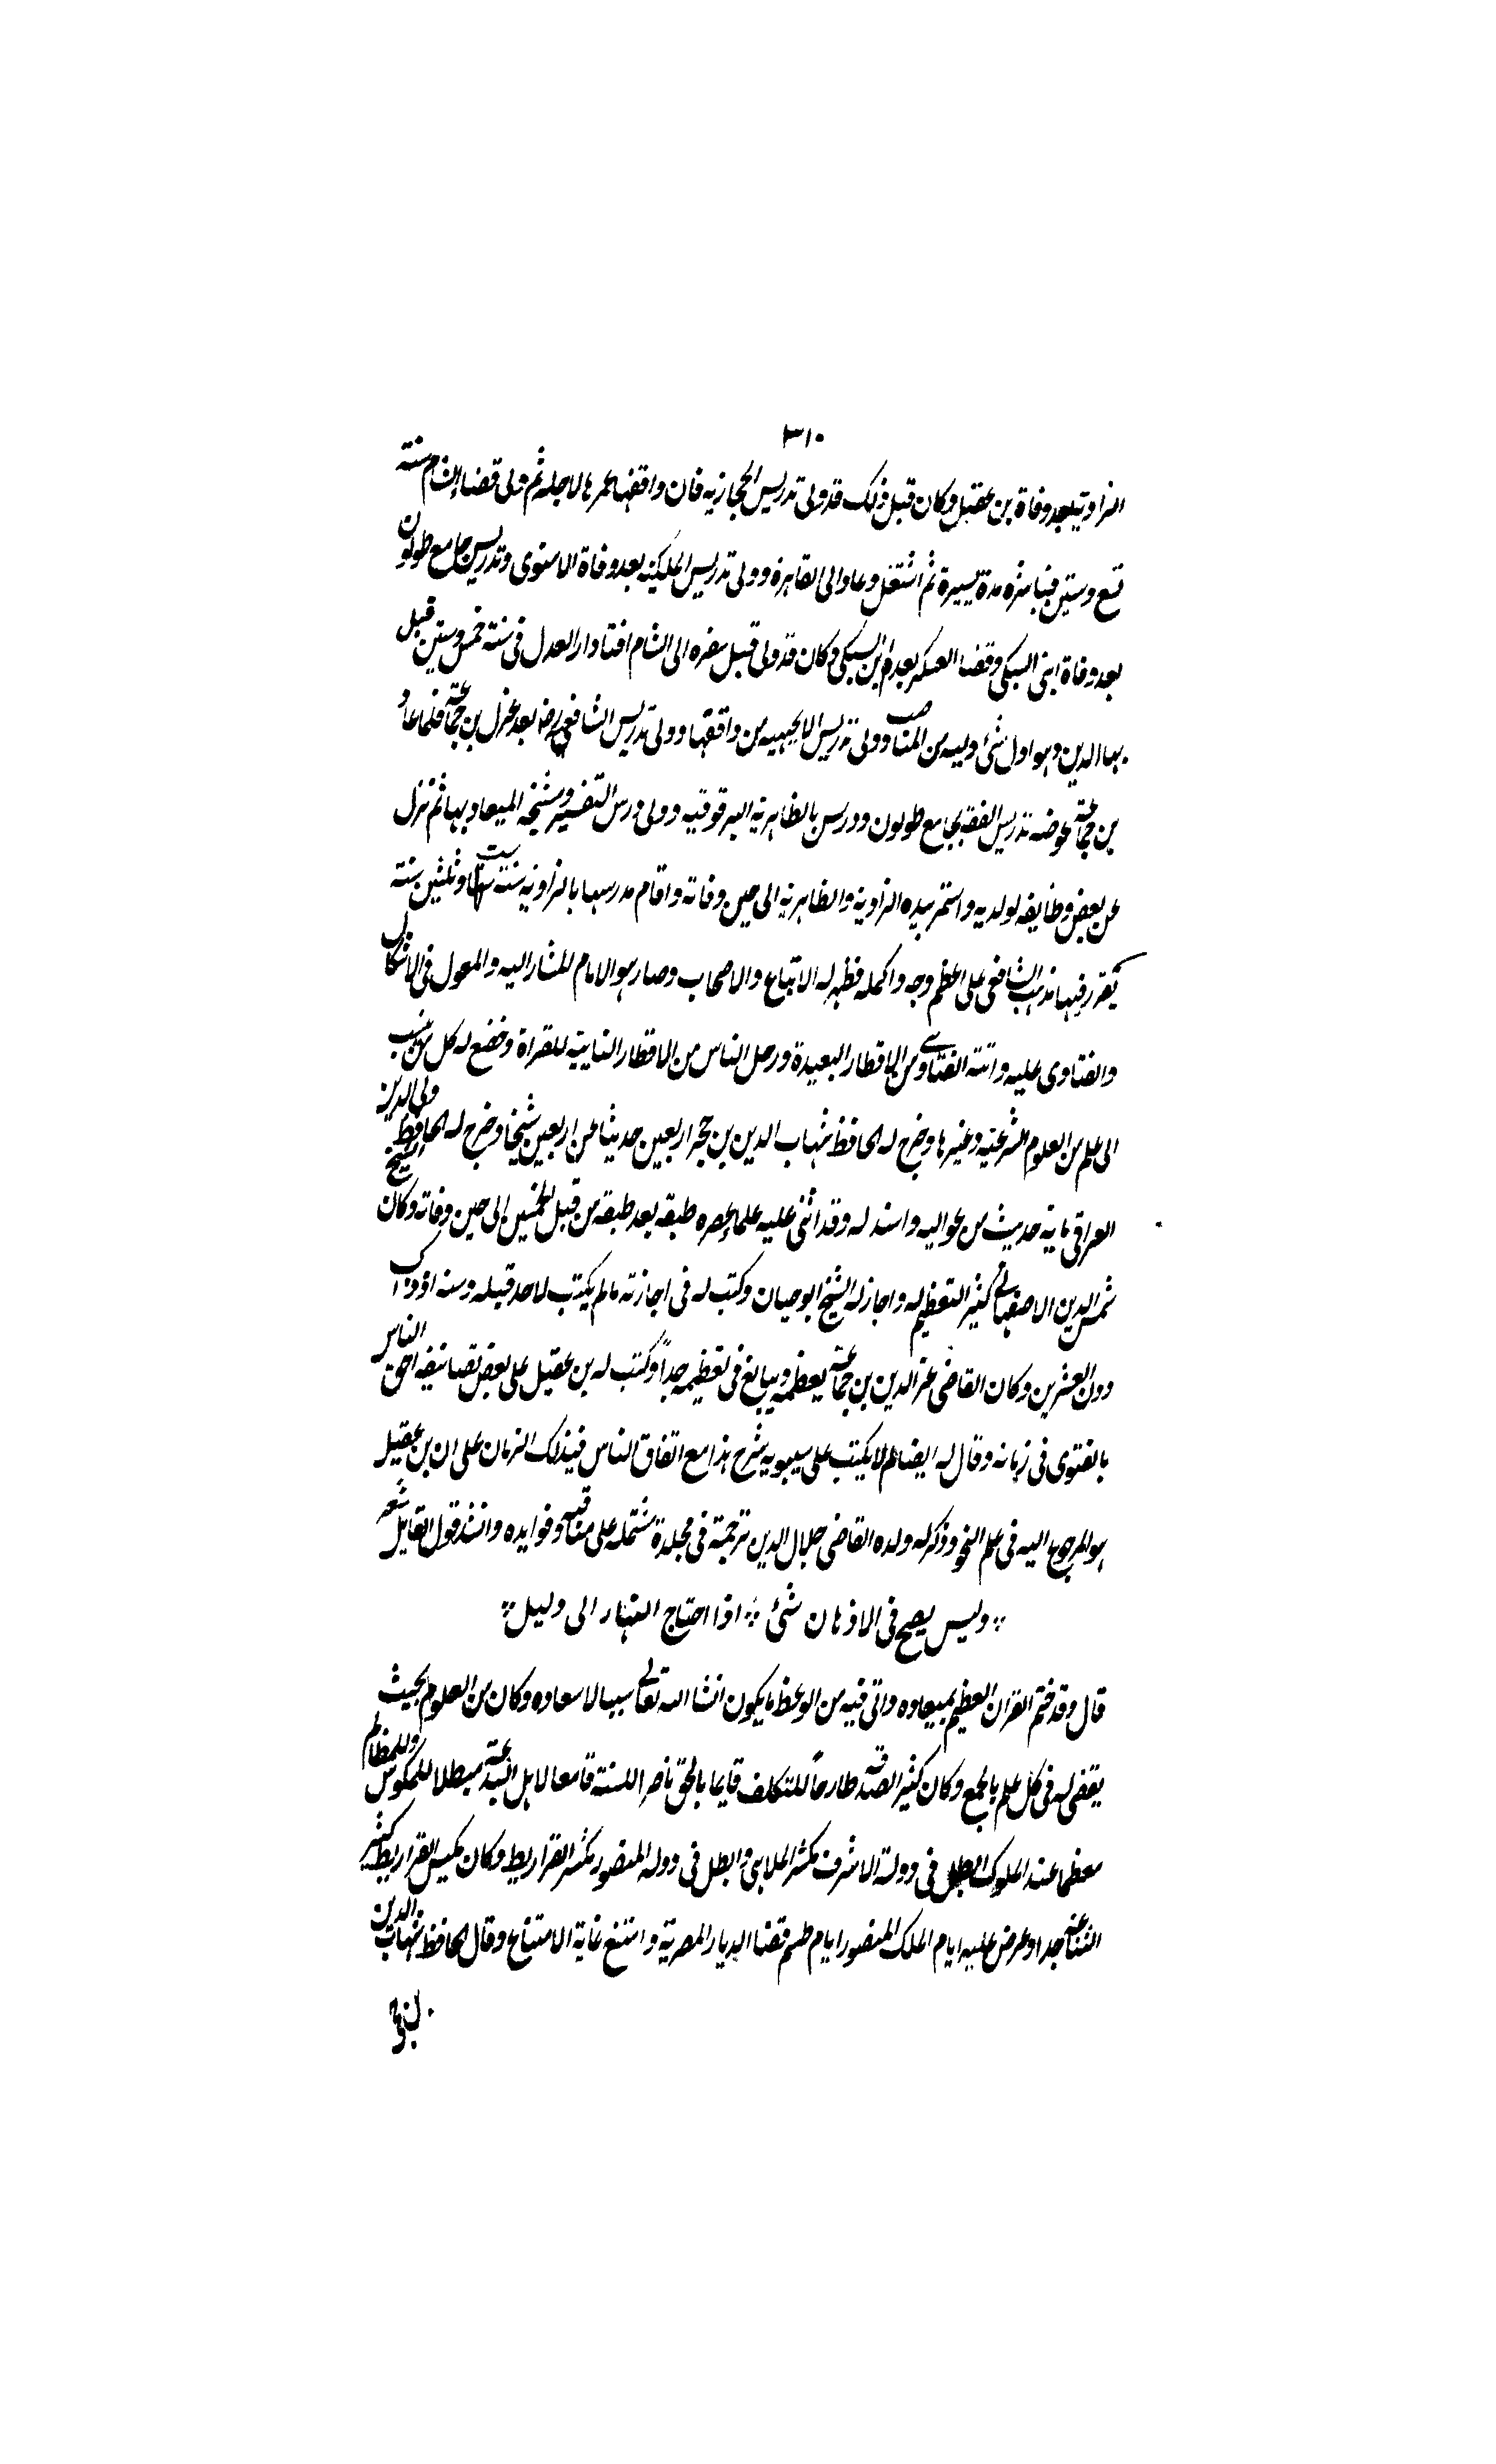 ٣١٠
الزاوية بعد وفاة بن عقيل وكان قبل ذلك قد ولى تدريس الحجازية فان واقفها عمرها لاجله ثم ولى قضاء الشام سنة
تسع وستين فباشره مدة يسيرة ثم اشتغل وعاد الى القاهرة وولى تدريس الملكية بعد وفاة الاسنوى وتدريس جامع طولون
بعد وفاة ابنى السبكى وقضا العسكر بعد ابن السبكى وكان قد ولى قبل سفره الى الشام افتا دار العدل فى سنة خمس وستين قبل
بهاالدين وهو اول شئ وليه من المناصب وولى تدريس الايجيهيه من واقفها وولى تدريس الشافعى رضا بعد عزل بن جماعة فلما عاد
بن جماعة عوضه تدريس الفقه بجامع طولون ودرس بالظاهرية البرقوقيه وولى درس التفسير ومشيخه الميعاد بها ثم نزل
عن بعض وظايفه لولديه واستمر بيده الزاوية والظاهرية الى حين وفاته واقام مدرسا بالزاوية ستا وثلثين سنة
يقرر فيها مذهب الشافعى على اعظم وجه واكمله فظهر له الاتباع والاصحاب وصار هو الامام المشار اليه والمعول فى الاشكال
والفتاوى عليه واتته الفتاوى من الاقطار البعيدة ورحل الناس من الاقطار النايية للقراة وخضع له كل من ينسب
الى علم من العلوم الشرعية وغيرها وخرج له الحافظ شهاب الدين بن حجر اربعين حديثا عن اربعين شيخا وخرج له الحافظ ولى الدين
العراقى ماية حديث من عواليه واسند له وقد اثنى عليه علماء عصره طبقه بعد طبقه من قبل الخمسين الى حين وفاته وكان الشيخ
شمس الدين الاصفهانى كثير التعظيم له واجاز له الشيخ ابو حيان وكتب له فى اجازته مالم يكتب لاحد قبله وسنه اذ ذاك
دون العشرين وكان القاضى عز الدين بن جماعة يعظمه ويبالغ فى تعظيمه جداً وكتب له بن عقيل على بعض تصانيفه احق الناس
بالفتوى فى زمانه وقال له ايضا لم لا يكتب على سيبويه شرح هذا مع اتفاق الناس فى ذلك الزمان على ان بن عقيل
هو المرجوع اليه فى علم النحو وذكر له ولده القاضى جلال الدين ترجمة فى مجلدة مشتمله على مناقبه وفوايده وانشد قول القايل شعر
وليس يصح فى الاذهان شئ ؞ اذا احتاج النهار الى دليل
قال وقد ختم القران العظيم بميعاده واتى فيه من الوعظ ما يكون انشا الله تعالى سببا لاسعاده وكان من العلوم بحيث
يقضى له فى كل علم بالجمع وكان كثير الصدقة طارحاً للتكلف قايما بالحق ناصرا للسنة قامعا لاهل البدعة مبطلا للمكوس وللمظالم
معظما عند الملوك ابطل فى دولة الاشرف مكس الملاهى وابطل فى دوله المنصور مكس القراريط وكان مكس القراريط كثير
الشناعة جدا وعرض عليه ايام الملك المنصور ايام طسم قضا الديار المصرية وامتنع غاية الامتناع وقال الحافظ شهاب الدين
بن